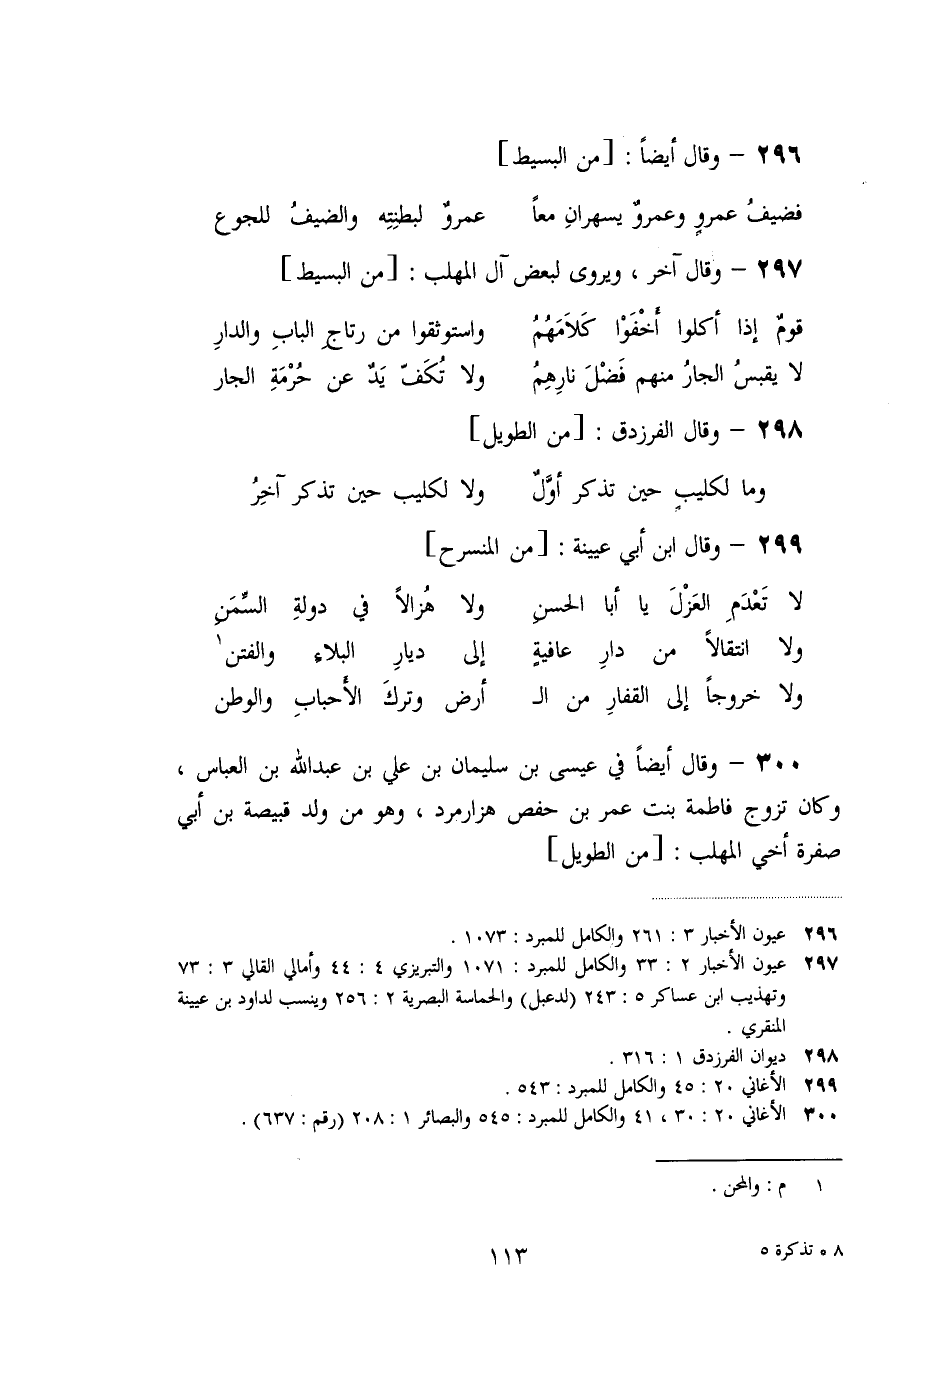 ٢٩٦ – وقال أيضاً : [من البسيط]
فضيفُ عمروٍ وعمروٌ يسهرانِ معاً عمروٌ لبطنِتِه والضيفُ للجوع
٢٩٧ – وقال آخر ، ويروى لبعض آل المهلب : [من البسيط]
قومٌ إذا أكلوا أَخْفَوْا كَلاَمَهُمُ واستوثقوا من رتاجِ البابِ والدارِ
لا يقبسُ الجارُ منهم فَضْلَ نارِهِمُ ولا تُكَفّ يَدٌ عن حُرْمَةِ الجار
٢٩٨ – وقال الفرزدق : [من الطويل]
وما لكليبٍ حين تذكر أوَّلٌ ولا لكليب حين تذكر آخِرُ
٢٩٩ – وقال ابن أبي عيينة : [من المنسرح]
لا تَعْدَمِ العَزْلَ يا أبا الحسنِ ولا هُزالاً في دولةِ السِّمَنِ
ولا انتقالاً من دارِ عافيةٍ إلى ديارِ البلاءِ والفتن١
ولا خروجاً إلى القفارِ من الـ أرض وتركَ الأَحبابِ والوطن
٣٠٠ – وقال أيضاً في عيسى بن سليمان بن علي بن عبدالله بن العباس ،
وكان تزوج فاطمة بنت عمر بن حفص هزارمرد ، وهو من ولد قبيصة بن أبي
صفرة أخي المهلب : [من الطويل]
٢٩٦ عيون الأخبار ٣ : ٢٦١ والكامل للمبرد : ١٠٧٣ .
٢٩٧ عيون الأخبار ٢ : ٣٣ والكامل للمبرد : ١٠٧١ والتبريزي ٤ : ٤٤ وأمالي القالي ٣ : ٧٣
وتهذيب ابن عساكر ٥ : ٢٤٣ (لدعبل) والحماسة البصرية ٢ : ٢٥٦ وينسب لداود بن عيينة
المنقري .
٢٩٨ ديوان الفرزدق ١ : ٣١٦ .
٢٩٩ الأغاني ٢٠ : ٤٥ والكامل للمبرد : ٥٤٣ .
٣٠٠ الأغاني ٢٠ : ٣٠ ، ٤١ والكامل للمبرد : ٥٤٥ والبصائر ١ : ٢٠٨ (رقم : ٦٣٧) .
١ م : والمحن .
٨ ه تذكرة ٥
١١٣